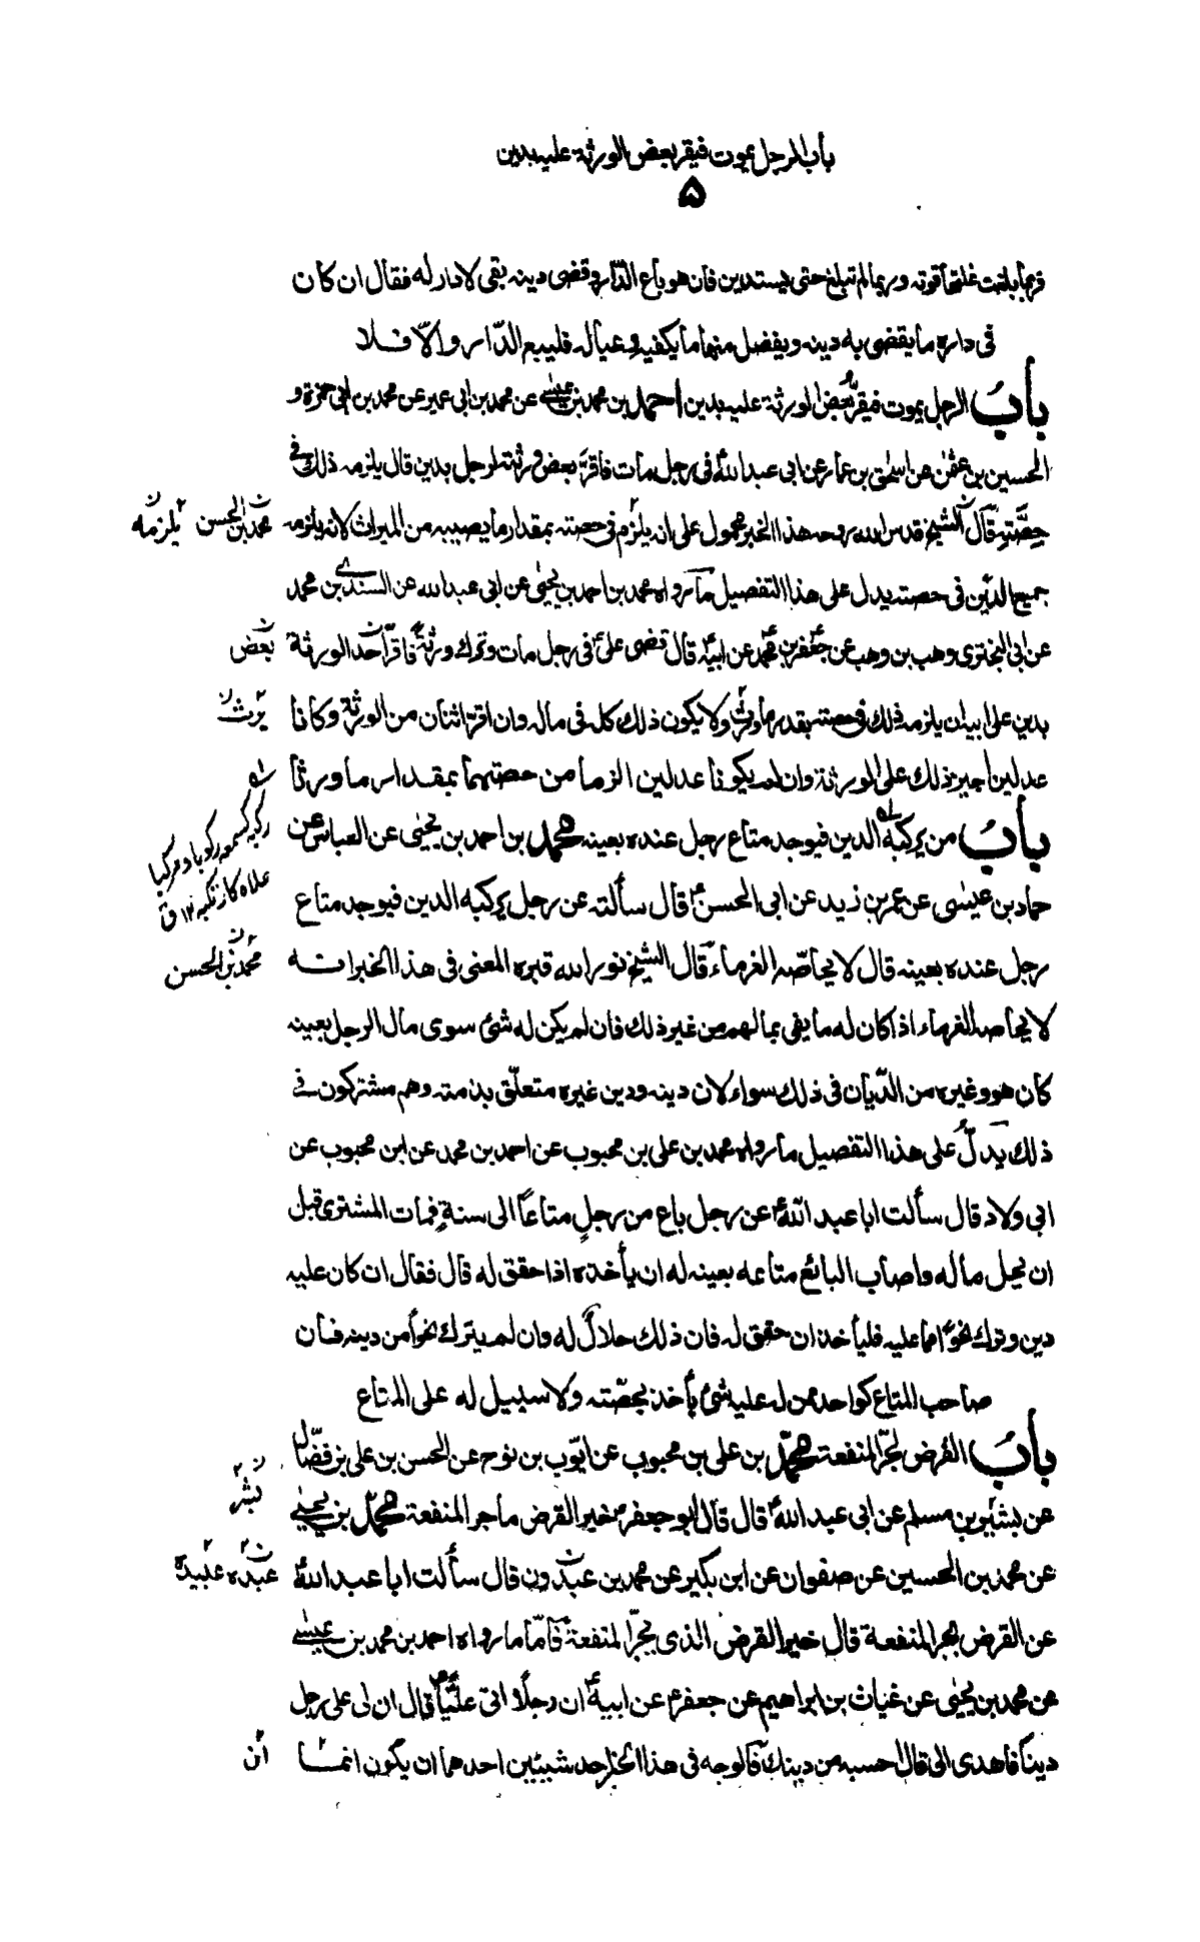 باب الرجل يموت فيقر بعض الورثة عليه بدين
۵
فربما بلغت غلتها قوته وربما لم تبلغ حتى يستدين فان هو باع الدّار وقضى دينه بقى لا دار له فقال ان كان
فى داره ما يقضى به دينه ويفضل منها ما يكفيه وعياله فليبع الدّار والّا فلا
بابُ الرجل يموت فيقرّ بعض الورثة عليه بدين احمد بن محمد بن عيسٰى عن محمد بن ابى عمير عن محمد بن ابى حمزة و
الحسين بن عثمٰن عن اسحٰق بن عمار عن ابى عبد اللهؑ فى رجل مات فاقرّ بعض ورثته لرجل بدين قال يلزمه ذلك فى
حِصَّتِهِ قَالَ الشيخ قدس الله روحه هذا الخبر محمول على انه يلزم فى حصته بمقدار ما يصيبه من الميراث لا انه يلزمه
محمد بن الحسن
يلزمه
جميع الدّين فى حصته يدل على هذا التفصيل مَا رواه محمد بن احمد بن يحيٰى عن ابى عبد الله عن السندى بن محمد
عن ابى البخترى وهب بن وهب عن جعفر بن محمد عن ابيهؑ قال قضى علىؑ فى رجل مات وترك ورثةً فاقرّ احد الورثة
بعض
بدين على ابيه انه يلزمه ذلك فى حصته بقدر ما ورث ولا يكون ذلك كله فى ماله وان اقر اثنان من الورثة وكانا
يرث
عدلين اجيز ذلك على الورثة وان لم يكونا عدلين الزما من حصتهما بمقدار ما ورثا
بابُ من يركبه الدين فيوجد متاع رجل عنده بعينه محمد بن احمد بن يحيٰى عن العباس عن
حماد بن عيسٰى عن عمر بن زيد عن ابى الحسنؑ قال سألته عن رجل يركبه الدين فيوجد متاع
رجل عنده بعينه قال لا يحاصّه الغرماء قَال الشيخ نور الله قبره المعنى فى هذا الخبر انه
محمد بن الحسن
لا يحاصه الغرماء اذا كان له ما يفى بما لهم من غير ذلك فان لم يكن له شئ سوى مال الرجل بعينه
كان هو وغيره من الدّيان فى ذلك سواء لان دينه ودين غيره متعلّق بذمته وهم مشتركون فى
ذلك يدلّ على هذا التفصيل ما رواه محمد بن على بن محبوب عن احمد بن محمد عن ابن محبوب عن
ابى ولاد قال سألت ابا عبد اللهؑ عن رجل باع من رجلٍ متاعًا الى سنةٍ فمات المشترى قبل
ان يحل ماله واصاب البائع متاعه بعينه له ان يأخذه اذا حقق له قال فقال ان كان عليه
دين وترك نحوًا مما عليه فليأخذ ان حقق له فان ذلك حلالٌ له وان لم يترك نحواً من دينه فان
صاحب المتاع كواحد ممن له عليه شئ يأخذ بحصّته ولا سبيل له على المتاع
بابُ القرض لجرّ المنفعة محمّد بن على بن محبوب عن ايّوب بن نوح عن الحسن بن على بن فضّال
عن بشير بن مسلم عن ابى عبد اللهؑ قال قال ابو جعفرؑ خير القرض ما جر المنفعة محمّد بن يحيٰى
بشر
عن محمد بن الحسين عن صفوان عن ابن بكير عن محمد بن عبدون قال سألت ابا عبد اللهؑ
عبده
عبيدة
عن القرض يجر المنفعة قال خير القرض الذى يجرّ المنفعة فَامّا ما رواه احمد بن محمد بن عيسٰى
عن محمد بن يحيٰى عن غياث بن ابراهيم عن جعفرؑ عن ابيهؑ ان رجلًا اتى عليًّاؑ قال ان لى على رجل
ديناً فاهدى الى قال احسبه من دينك فَالوجه فى هذا الخبر احد شيئين احدهما ان يكون انما
ان